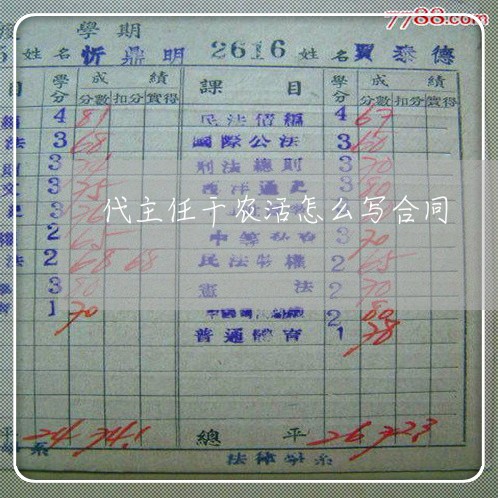 7788.com
學期
姓名 忻鼎明 2616 姓名 賈泰德
目 學分 成績 課目 學分 成績
分數 扣分 實得 分數 扣分 實得
4 81 民法債編 4 67
法 3 68 國際公法 3 60
3 刑法總則 3 70
3 75 西洋通史 3 80
代主任干农活怎么写合同
2 65 3 70
法 2 68 68 民法物權 2 65
3 80 憲法 2 70
1 70 2 80
普通體育 1 78
平 24 74.1 總平 26 72.3
系 法律學系